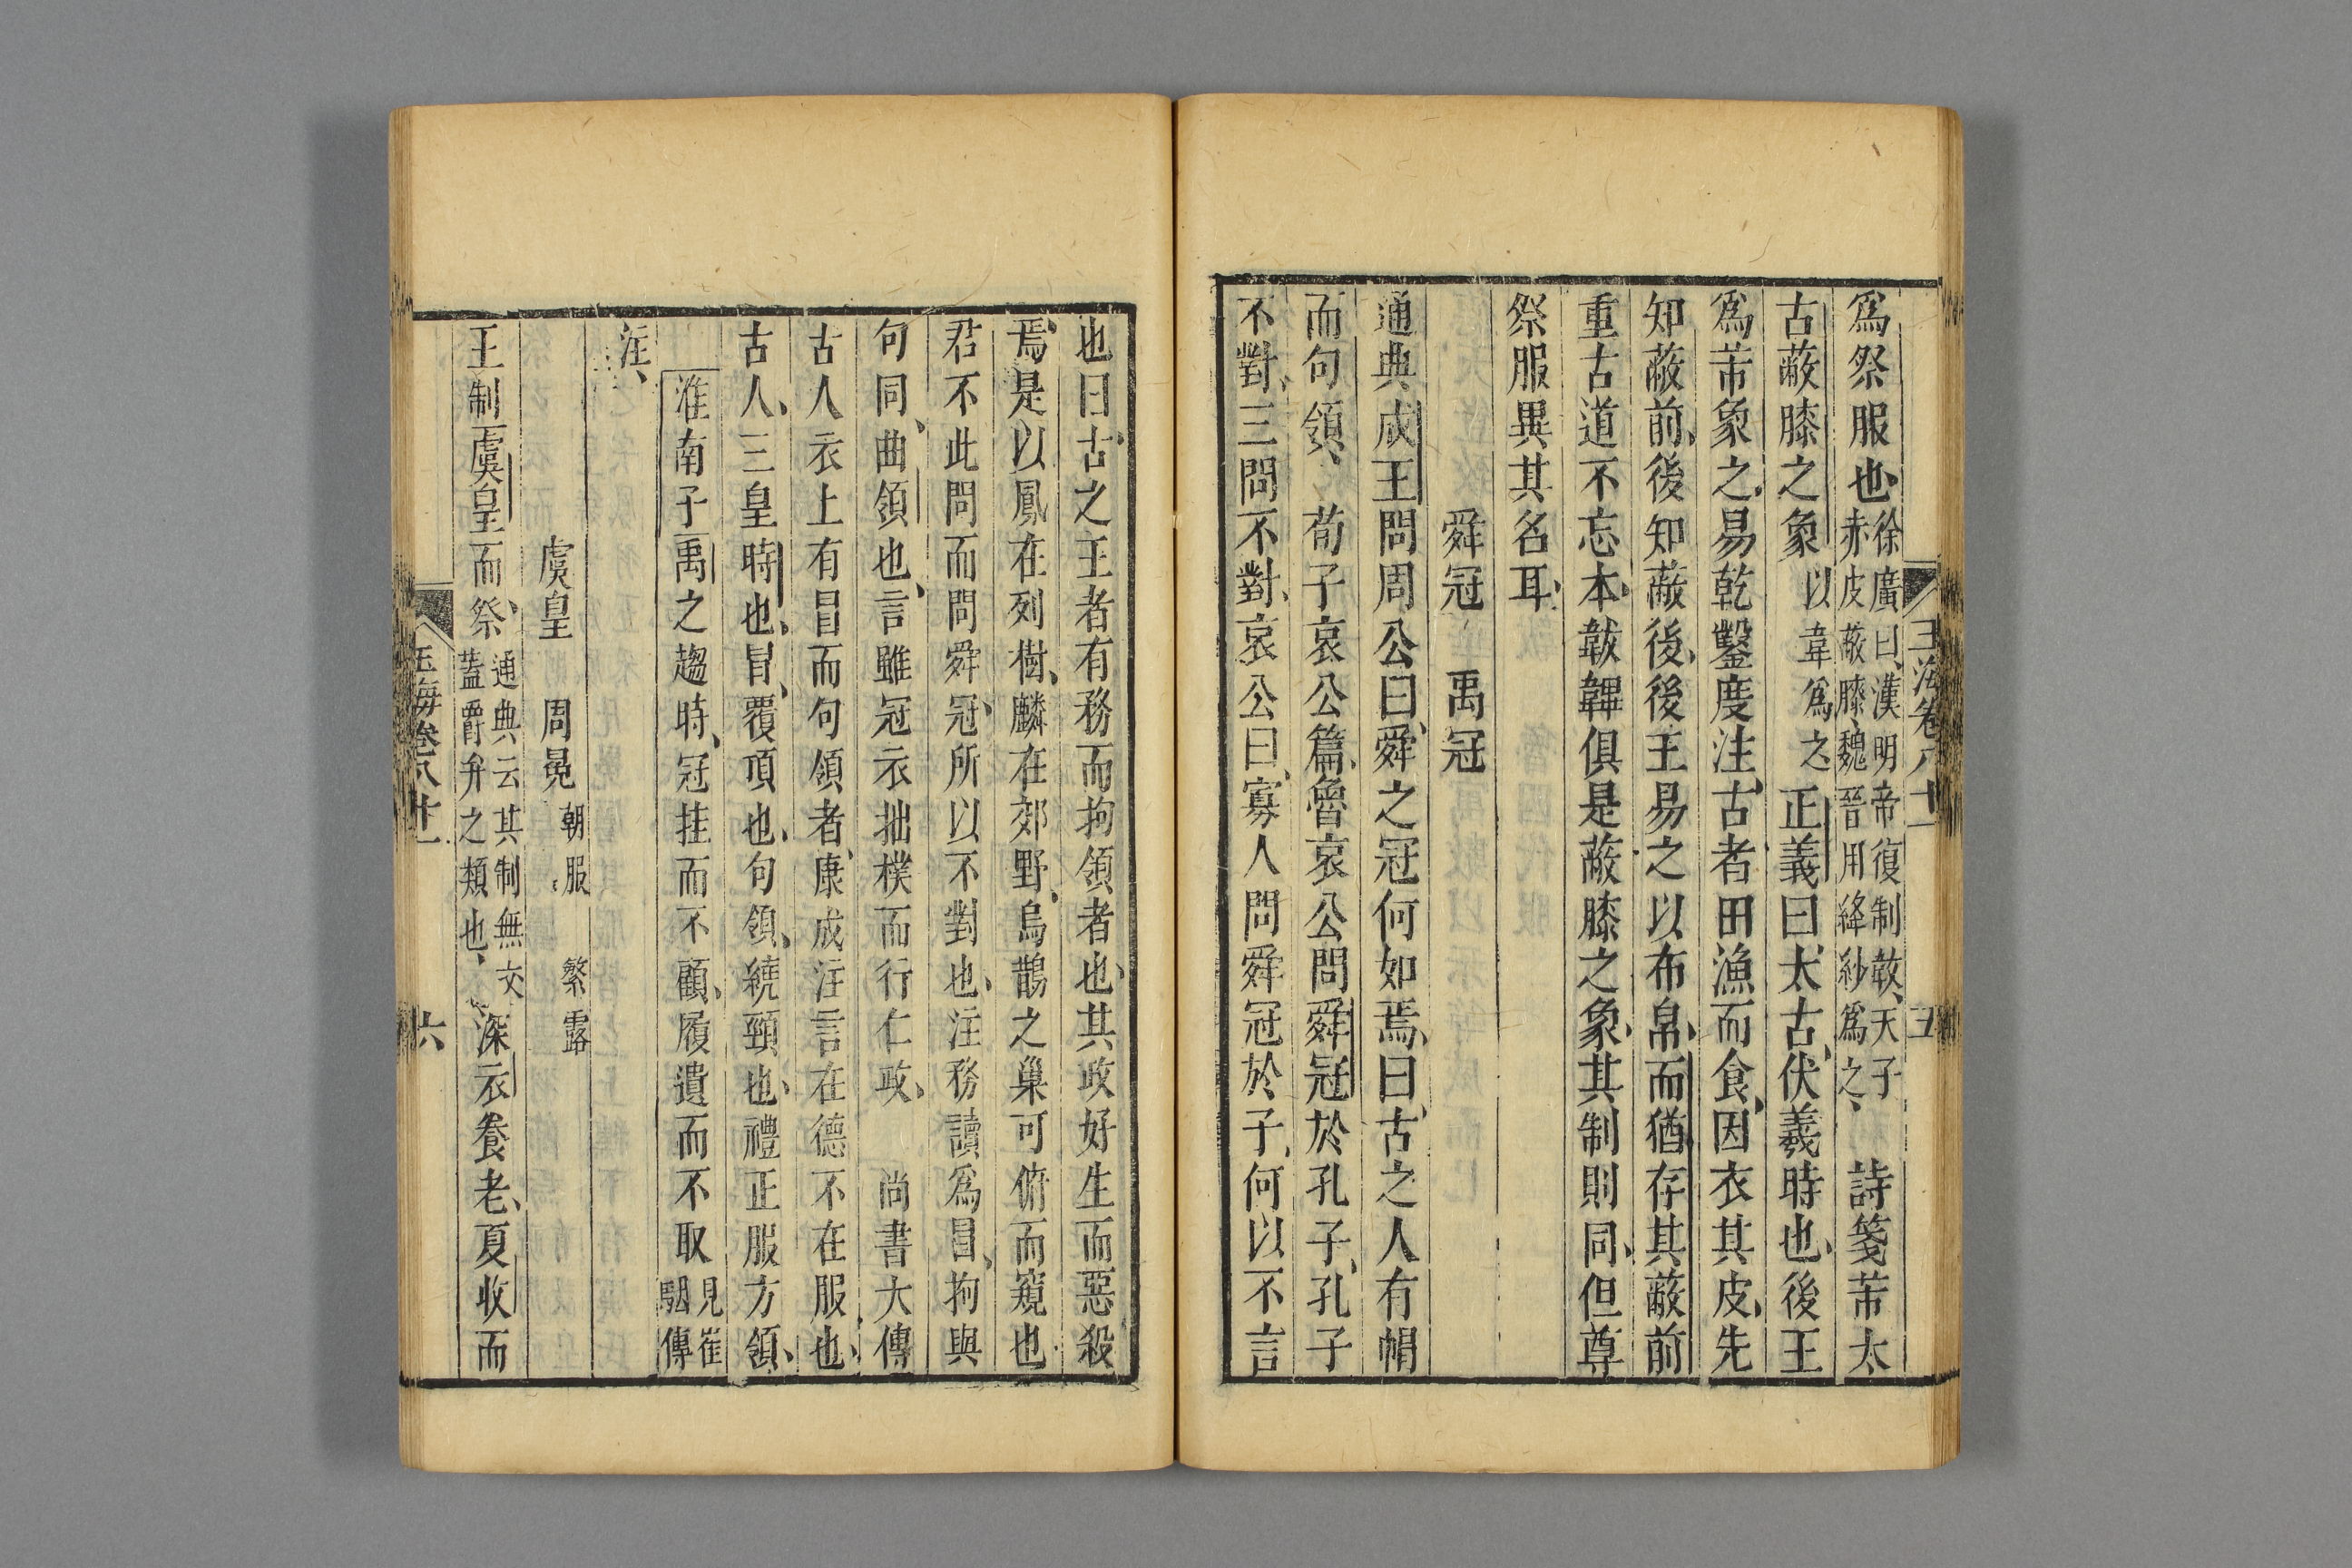 玉海卷八十一 五
爲祭服也徐廣曰漢明帝復制韍天子赤皮蔽膝魏晉用絳紗爲之詩箋芾太
古蔽膝之象以韋爲之正義曰太古伏羲時也後王
爲芾象之易乾鑿度注古者田漁而食因衣其皮先
知蔽前後知蔽後後王易之以布帛而猶存其蔽前
重古道不忘本韍韠俱是蔽膝之象其制則同但尊
祭服異其名耳
舜冠 禹冠
通典成王問周公曰舜之冠何如焉曰古之人有帽
而句領 荀子哀公篇魯哀公問舜冠於孔子孔子
不對三問不對哀公曰寡人問舜冠於子何以不言
也曰古之王者有務而拘領者也其政好生而惡殺
焉是以鳳在列樹麟在郊野烏鵲之巢可俯而窺也
君不此問而問舜冠所以不對也注務讀爲冒拘與
句同曲領也言雖冠衣拙樸而行仁政 尚書大傳
古人衣上有冒而句領者康成注言在德不在服也
古人三皇時也冒覆項也句領繞頸也禮正服方領
淮南子禹之趨時冠挂而不顧履遺而不取見崔駰傳
注
虞皇 周冕朝服 繁露
王制虞皇而祭通典云其制無文蓋爵弁之類也深衣養老夏收而
玉海卷八十一 六